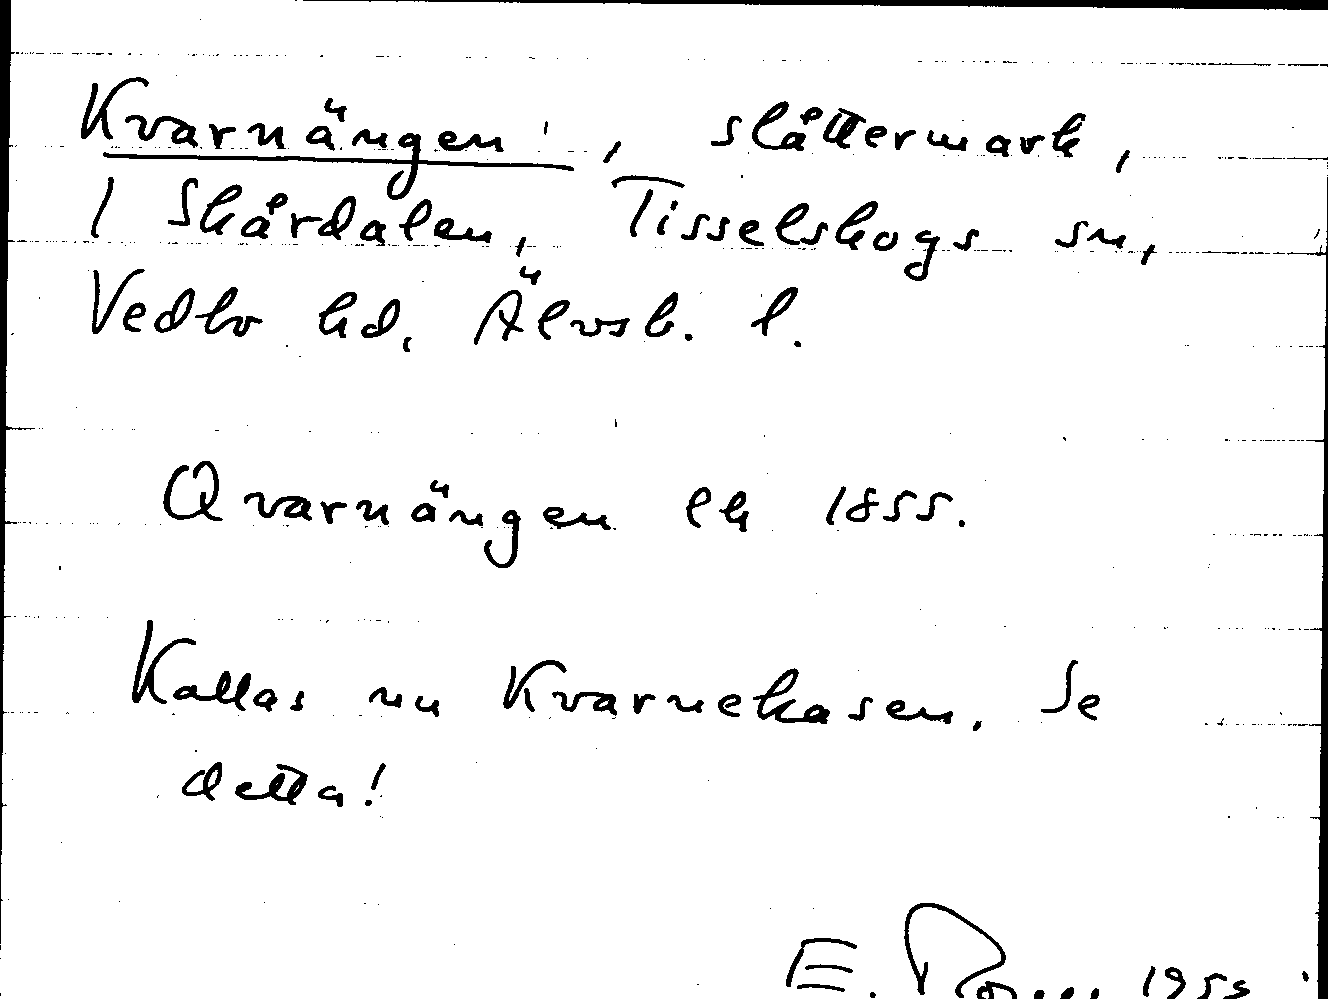 Kvarnängen, slåttermark,
1 Skårdalen, Tisselskogs sn,
Vedbo hd, Älvsb. l.
Qvarnängen LH 1855.
Kallas nu Kvarnekasen. Se
detta!
E. 1955